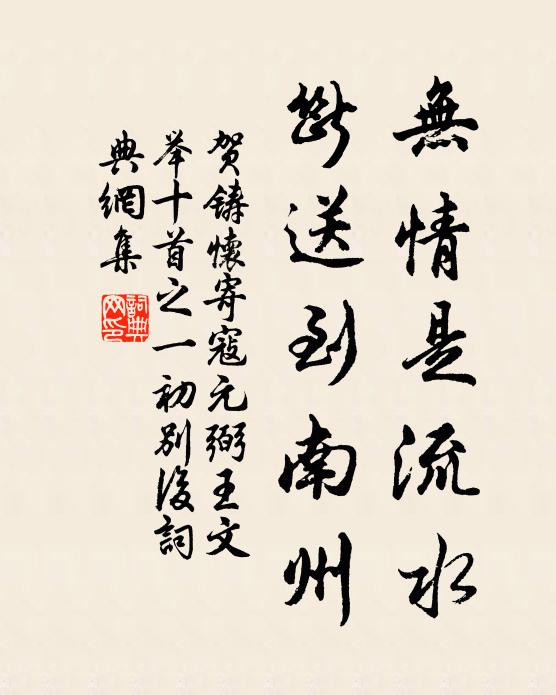 無情是流水
斷送到南州
賀鑄懷寄寇元弼王文
举十首之一初別後詞
典網集
詞典网印